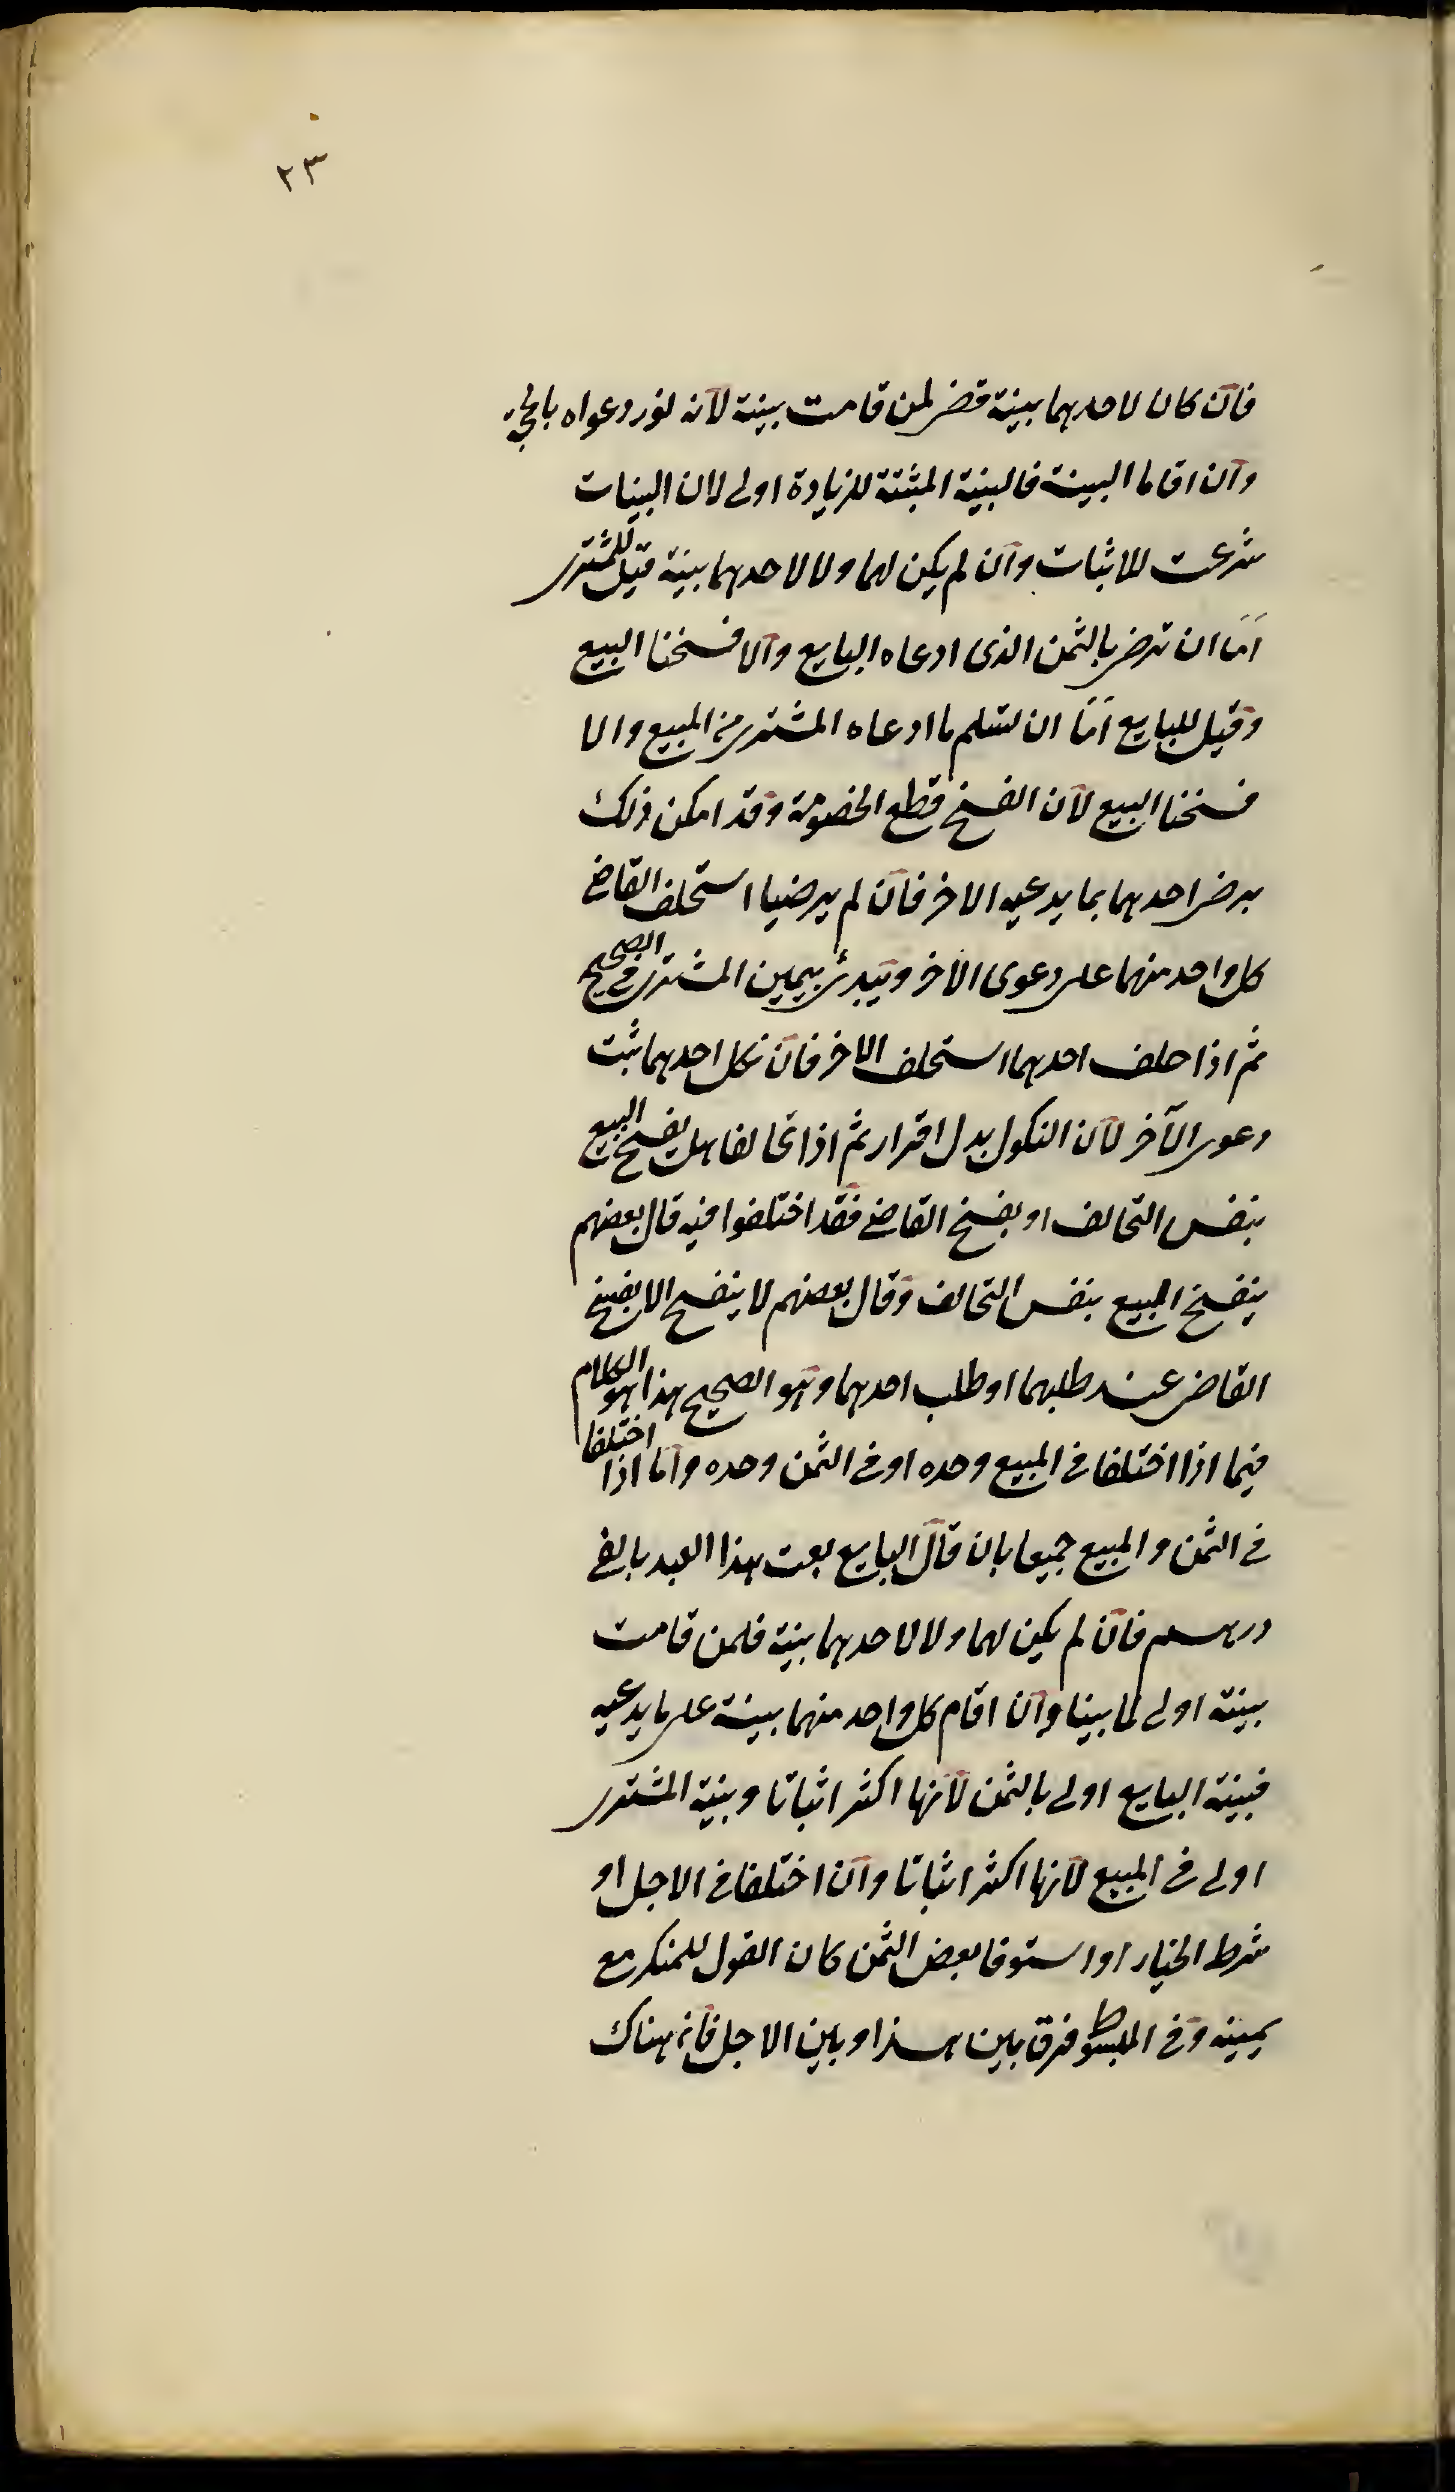 ٢٣
فان كان لاحدهما بينة قضى لمن قامت بينة لانه نور دعواه بالحجة
وان اقاما البينة فالبينة المثبتة للزيادة اولى لان البينات
شرعت للاثبات وان لم يكن لهما ولا لاحدهما بينة قيل للمشترى
اما ان ترضى بالثمن الذى ادعاه البايع والا فسخنا البيع
وقيل للبايع اما ان تسلم ما ادعاه المشترى من المبيع والا
فسخنا البيع لان الفسخ قطع الخصومة وقد امكن ذلك
برضى احدهما بما يدعيه الاخر فان لم يرضيا استحلف القاضى
كل واحد منهما على دعوى الاخر ويبدئ بيمين المشترى فى الصحيح
ثم اذا حلف احدهما استحلف الاخر فان نكل احدهما ثبت
دعوى الآخر لان النكول بدل اقرار ثم اذا تحالفا هل يفسخ البيع
بنفس التحالف او بفسخ القاضى فقد اختلفوا فيه قال بعضهم
ينفسخ المبيع بنفس التحالف وقال بعضهم لا ينفسخ الا بفسخ
القاضى عند طلبهما او طلب احدهما وهو الصحيح هذا هو الكلام
فيما اذا اختلفا فى المبيع وحده او فى الثمن وحده واما اذا اختلفا
فى الثمن و المبيع جميعا بان قال البايع بعت هذا العبد بالفى
درهم فان لم يكن لهما ولا لاحدهما بينة فلمن قامت
بينة اولى لما بينا وان اقام كل واحد منهما بينة على ما يدعيه
فبينة البايع اولى بالثمن لانها اكثر اثباتا وبينة المشترى
اولى فى المبيع لانها اكثر اثباتا وان اختلفا فى الاجل او
شرط الخيار او استوفا بعض الثمن كان القول للمنكر مع
يمينه وفى المبسوط فرق بين هذا وبين الاجل فانه هناك